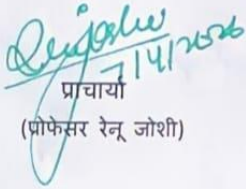 7/4/2026
प्राचार्या
(प्रोफेसर रेनू जोशी)